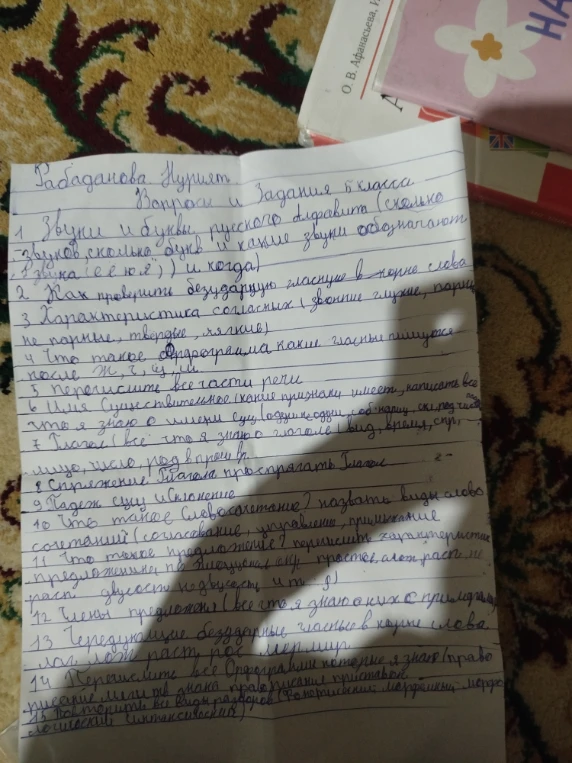 О. В. Афанасьева, И
А
НА
Рабаданова Нурият
Вопросы и Задания 5 класса
1 Звуки и буквы русского алфавита (сколько
звуков, сколько букв и какие звуки обозначают
2 звука (ё е ю я")) и когда)
2 Как проверить безударную гласную в корне слова
3 Характеристика согласных (звонкие глухие, парн
не парные, твердые, мягкие)
4 Что такое Орфограмма какие гласные пишутся
после ж, ч, щ, ш
5 перечислите все части речи
6 Имя Существительное (какие признаки имеет, написать все
что я знаю о имени сущ
7 Глагол (все что я знаю о глаголе (вид, время, спр,
лицо, число, род в прош вр
8 Спряжение Глагола проспрягать Глагол
9 Падеж сущ и склонение
10 Что такое Словосочетание? назвать виды слово
сочетаний (согласование, управление, примыкание
11 Что такое предложение? перечислить характеристик
предложению по простое, слож, расп, не
расп двусост недвусост, и т д)
12 Члены предложения (все что я знаю о них с примерами
13 Чередующие безударные гласные в корне слова
лаг лож раст рос мер мир
14 Перечислите все Орфограммы которые я знаю (право
писание мягкого знака правописания приставок
15 все виды разборов (Фонетический морфемный морфо
логический синтаксический)